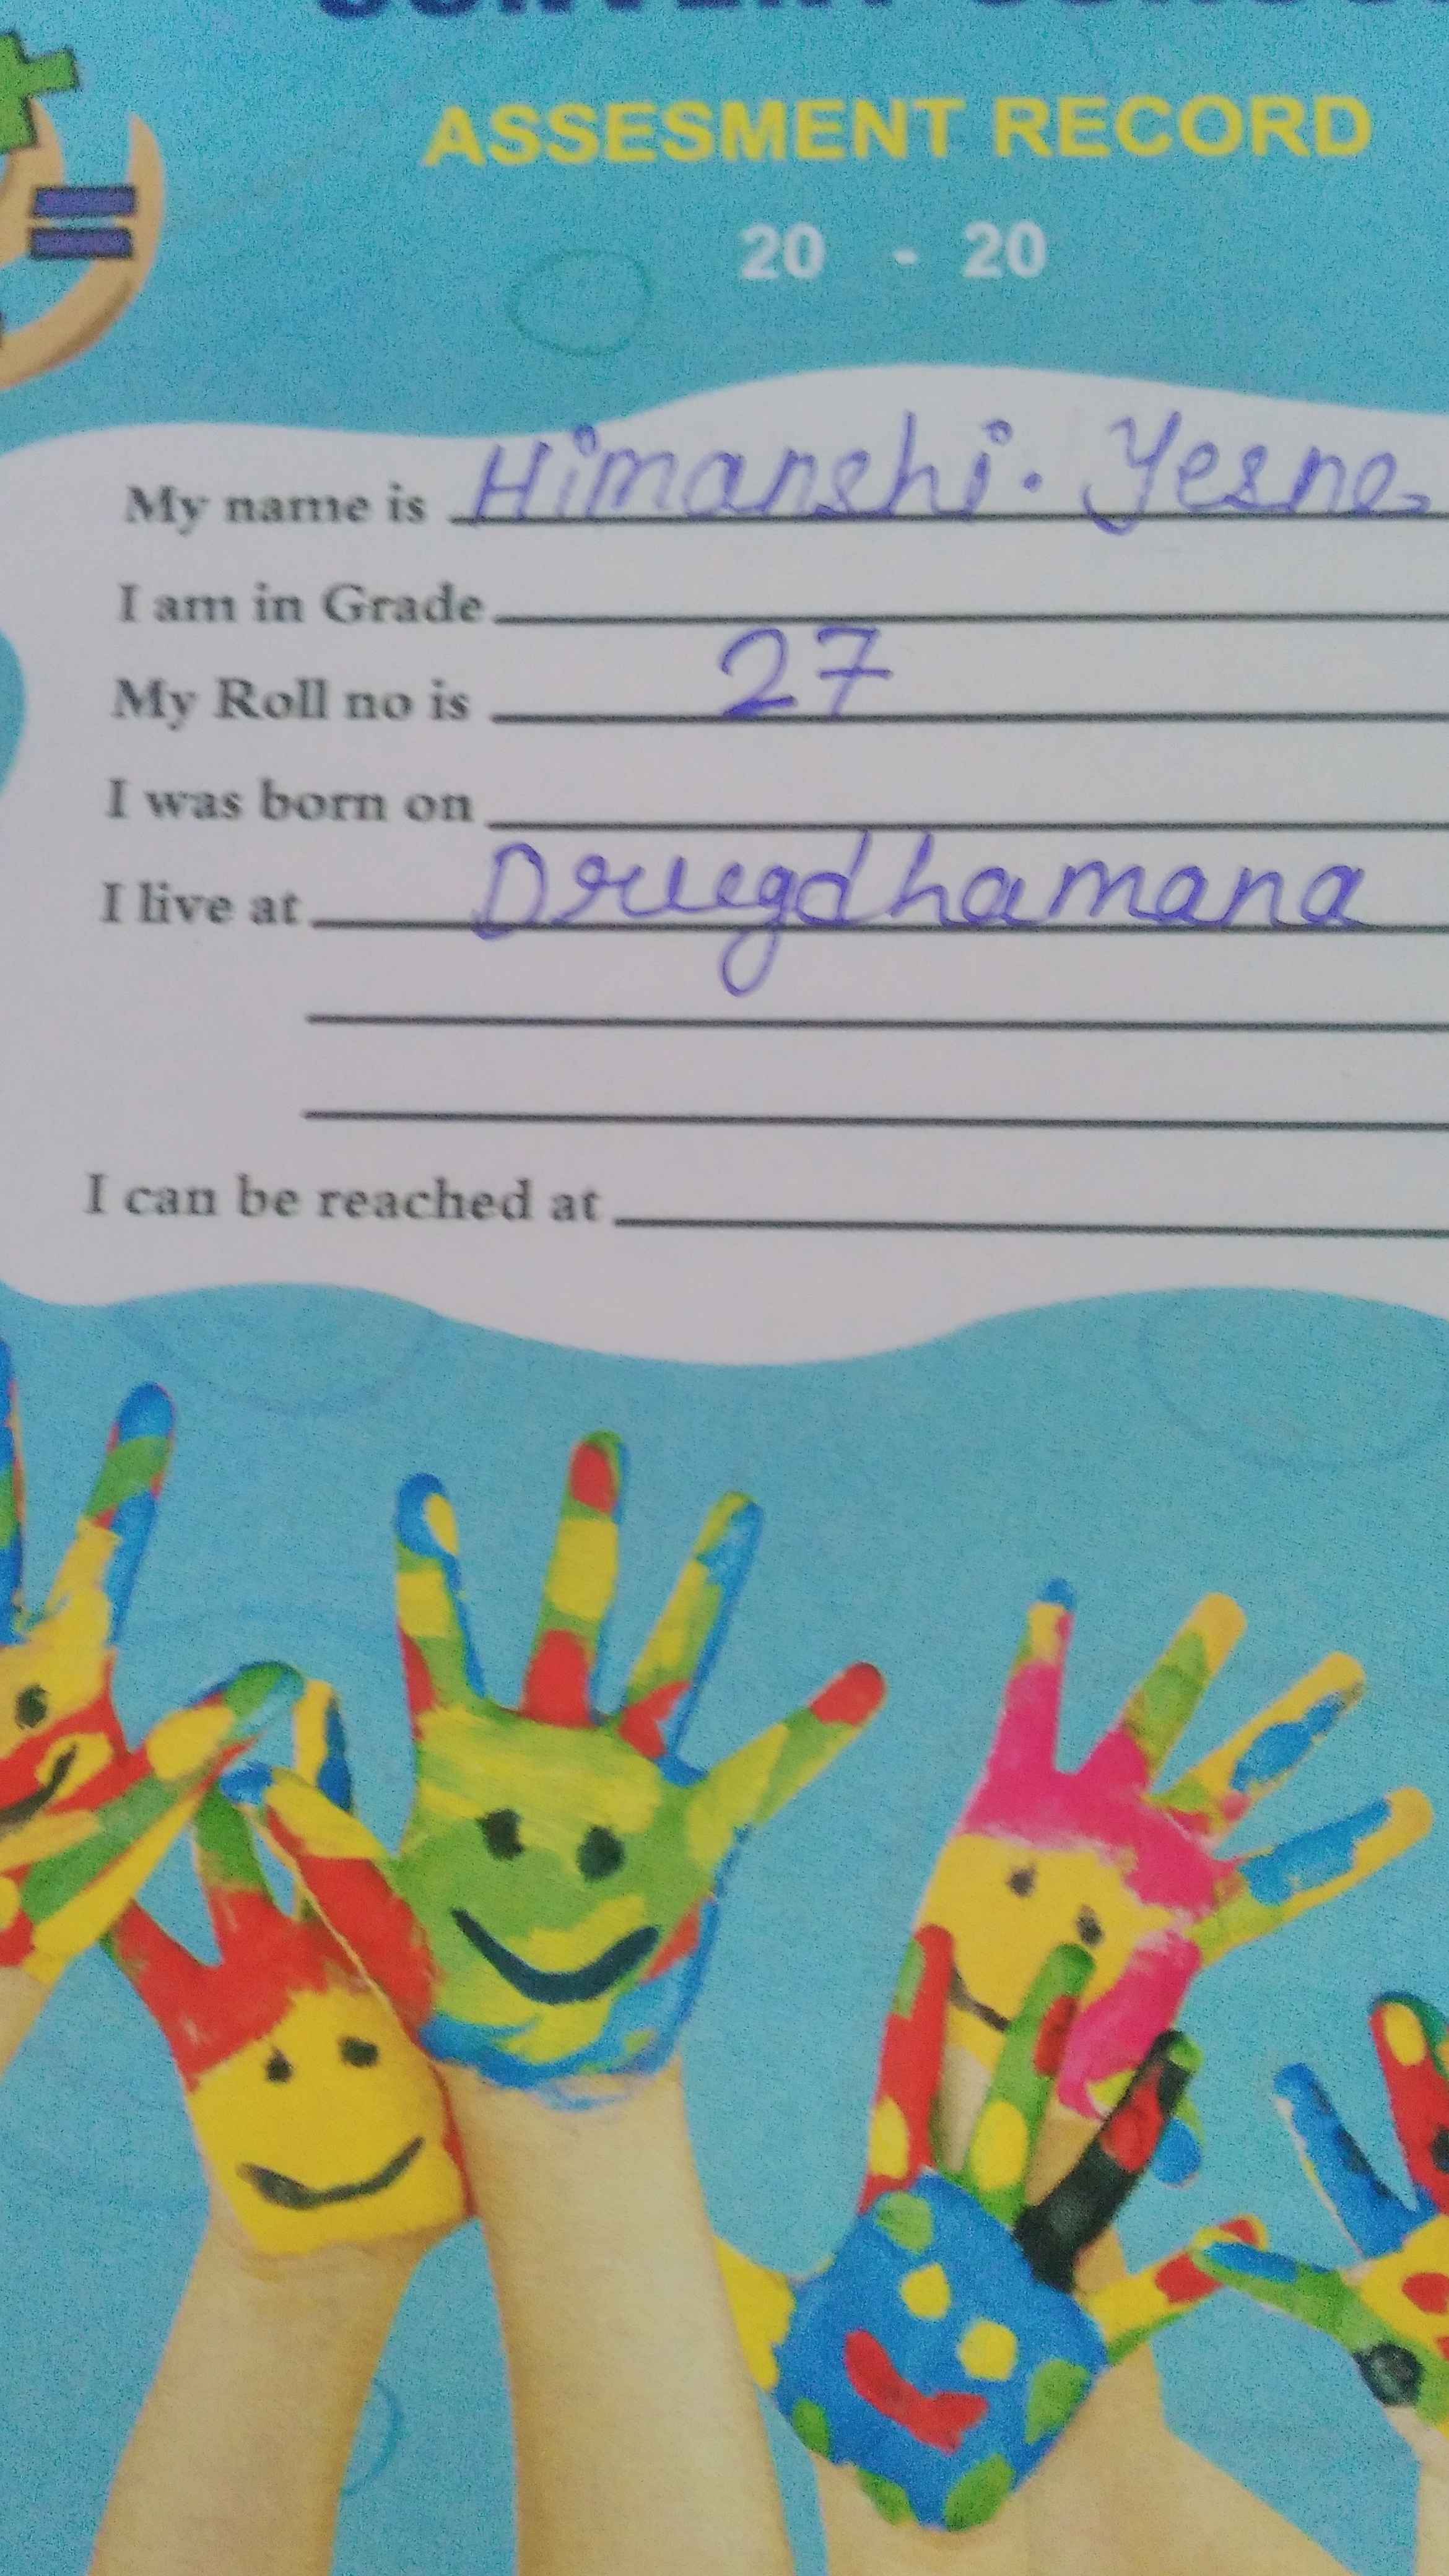 ASSESMENT RECORD
20 - 20
My name is Himanshi. Yesne
I am in Grade
My Roll no is 27
I was born on
I live at Drugdhamana
I can be reached at